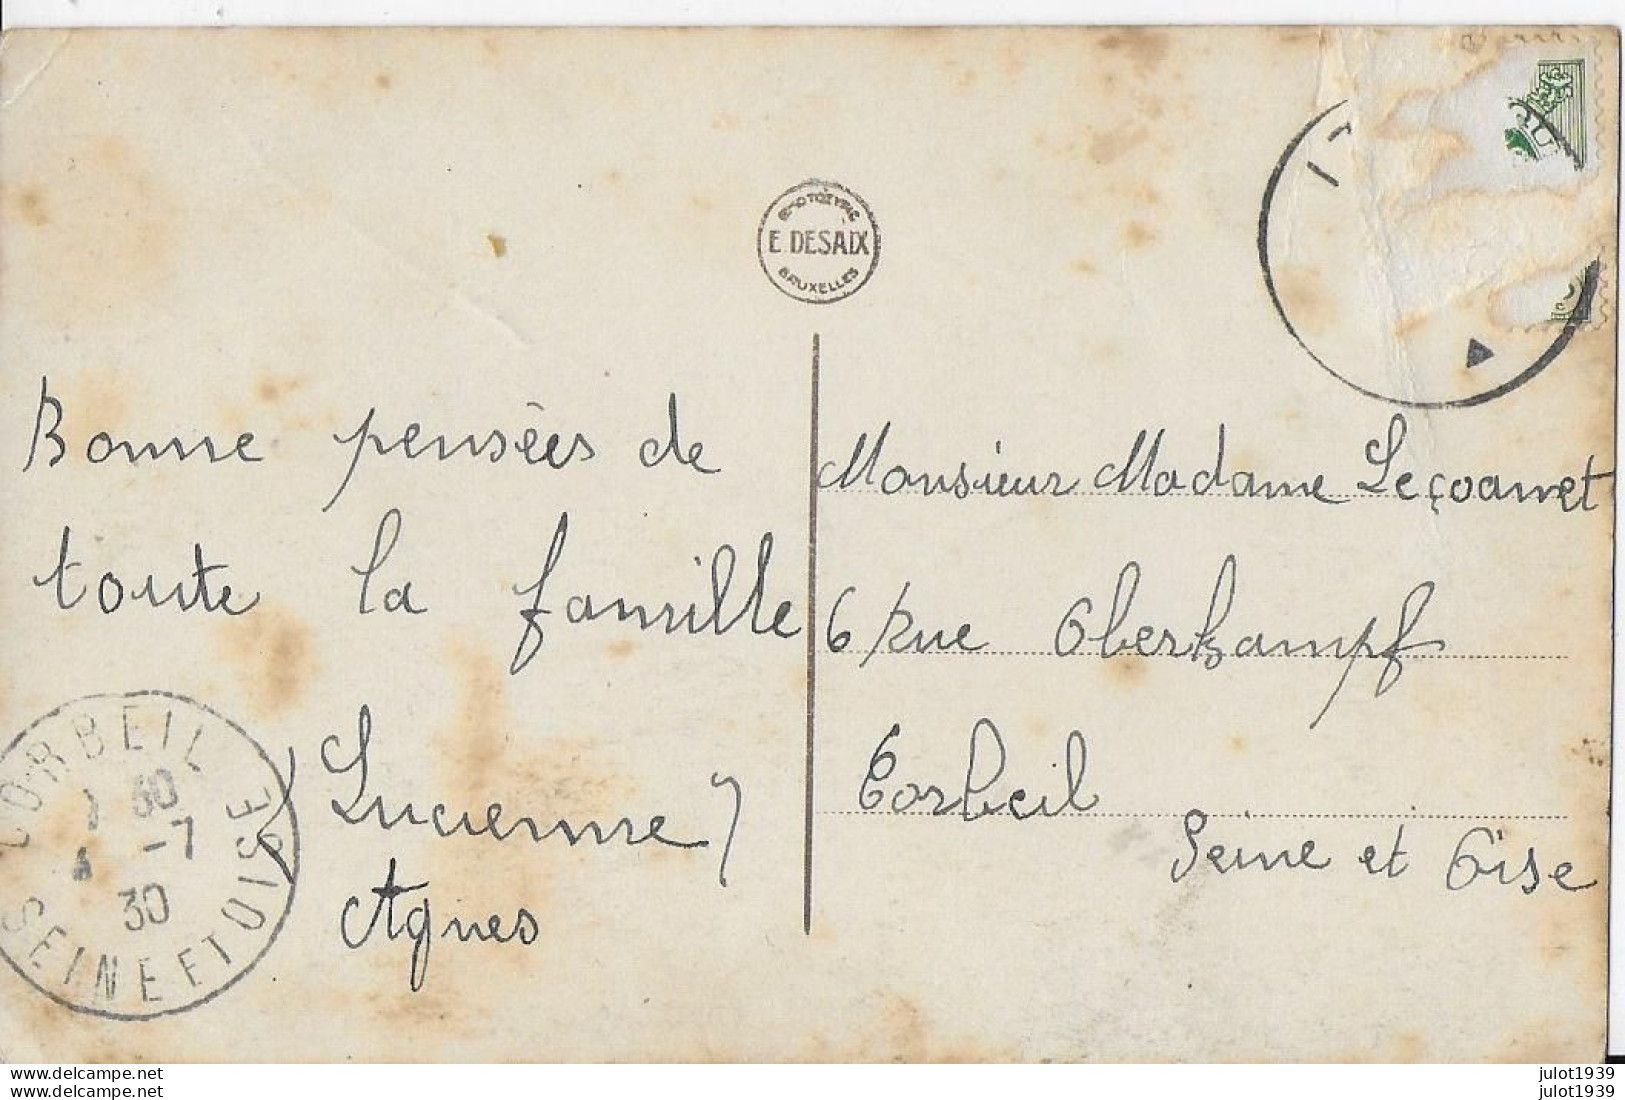 PHOTOTYPIE
E. DESAIX
BRUXELLES
Bonne pensées de
toute la famille
Lucienne
Agnes
Monsieur Madame Leçoannet
6 Rue Oberkampf
Corbeil
Seine et Oise
CORBEIL
-7
30
SEINE ET OISE
julot1939
julot1939